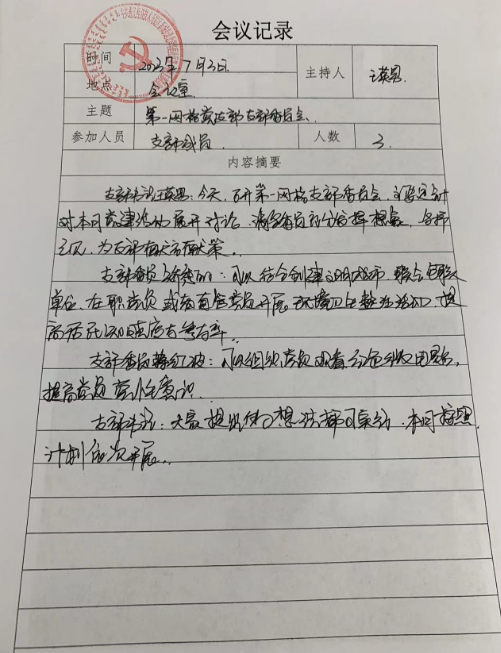 会议记录
时间 2023年7月3日 主持人
地点 会议室
主题 第一网格党支部支部委员会
参加人员 支部成员 人数 3
内容摘要
支部书记 今天,召开第一网格支部委员会,主要是针
对本月党建活动展开讨论,请各委员充分发挥想象,各抒
己见,为支部 献策。
支部委员 :可以结合创建文明城市,联合
单位,在职党员或者直管党员开展环境卫生整治活动,提
高居民
支部委员 :可以组织党员观看红色 电影,
提高党员党性意识。
支部书记:大家提出的想法都可实行,本月 按照
计划依次开展。